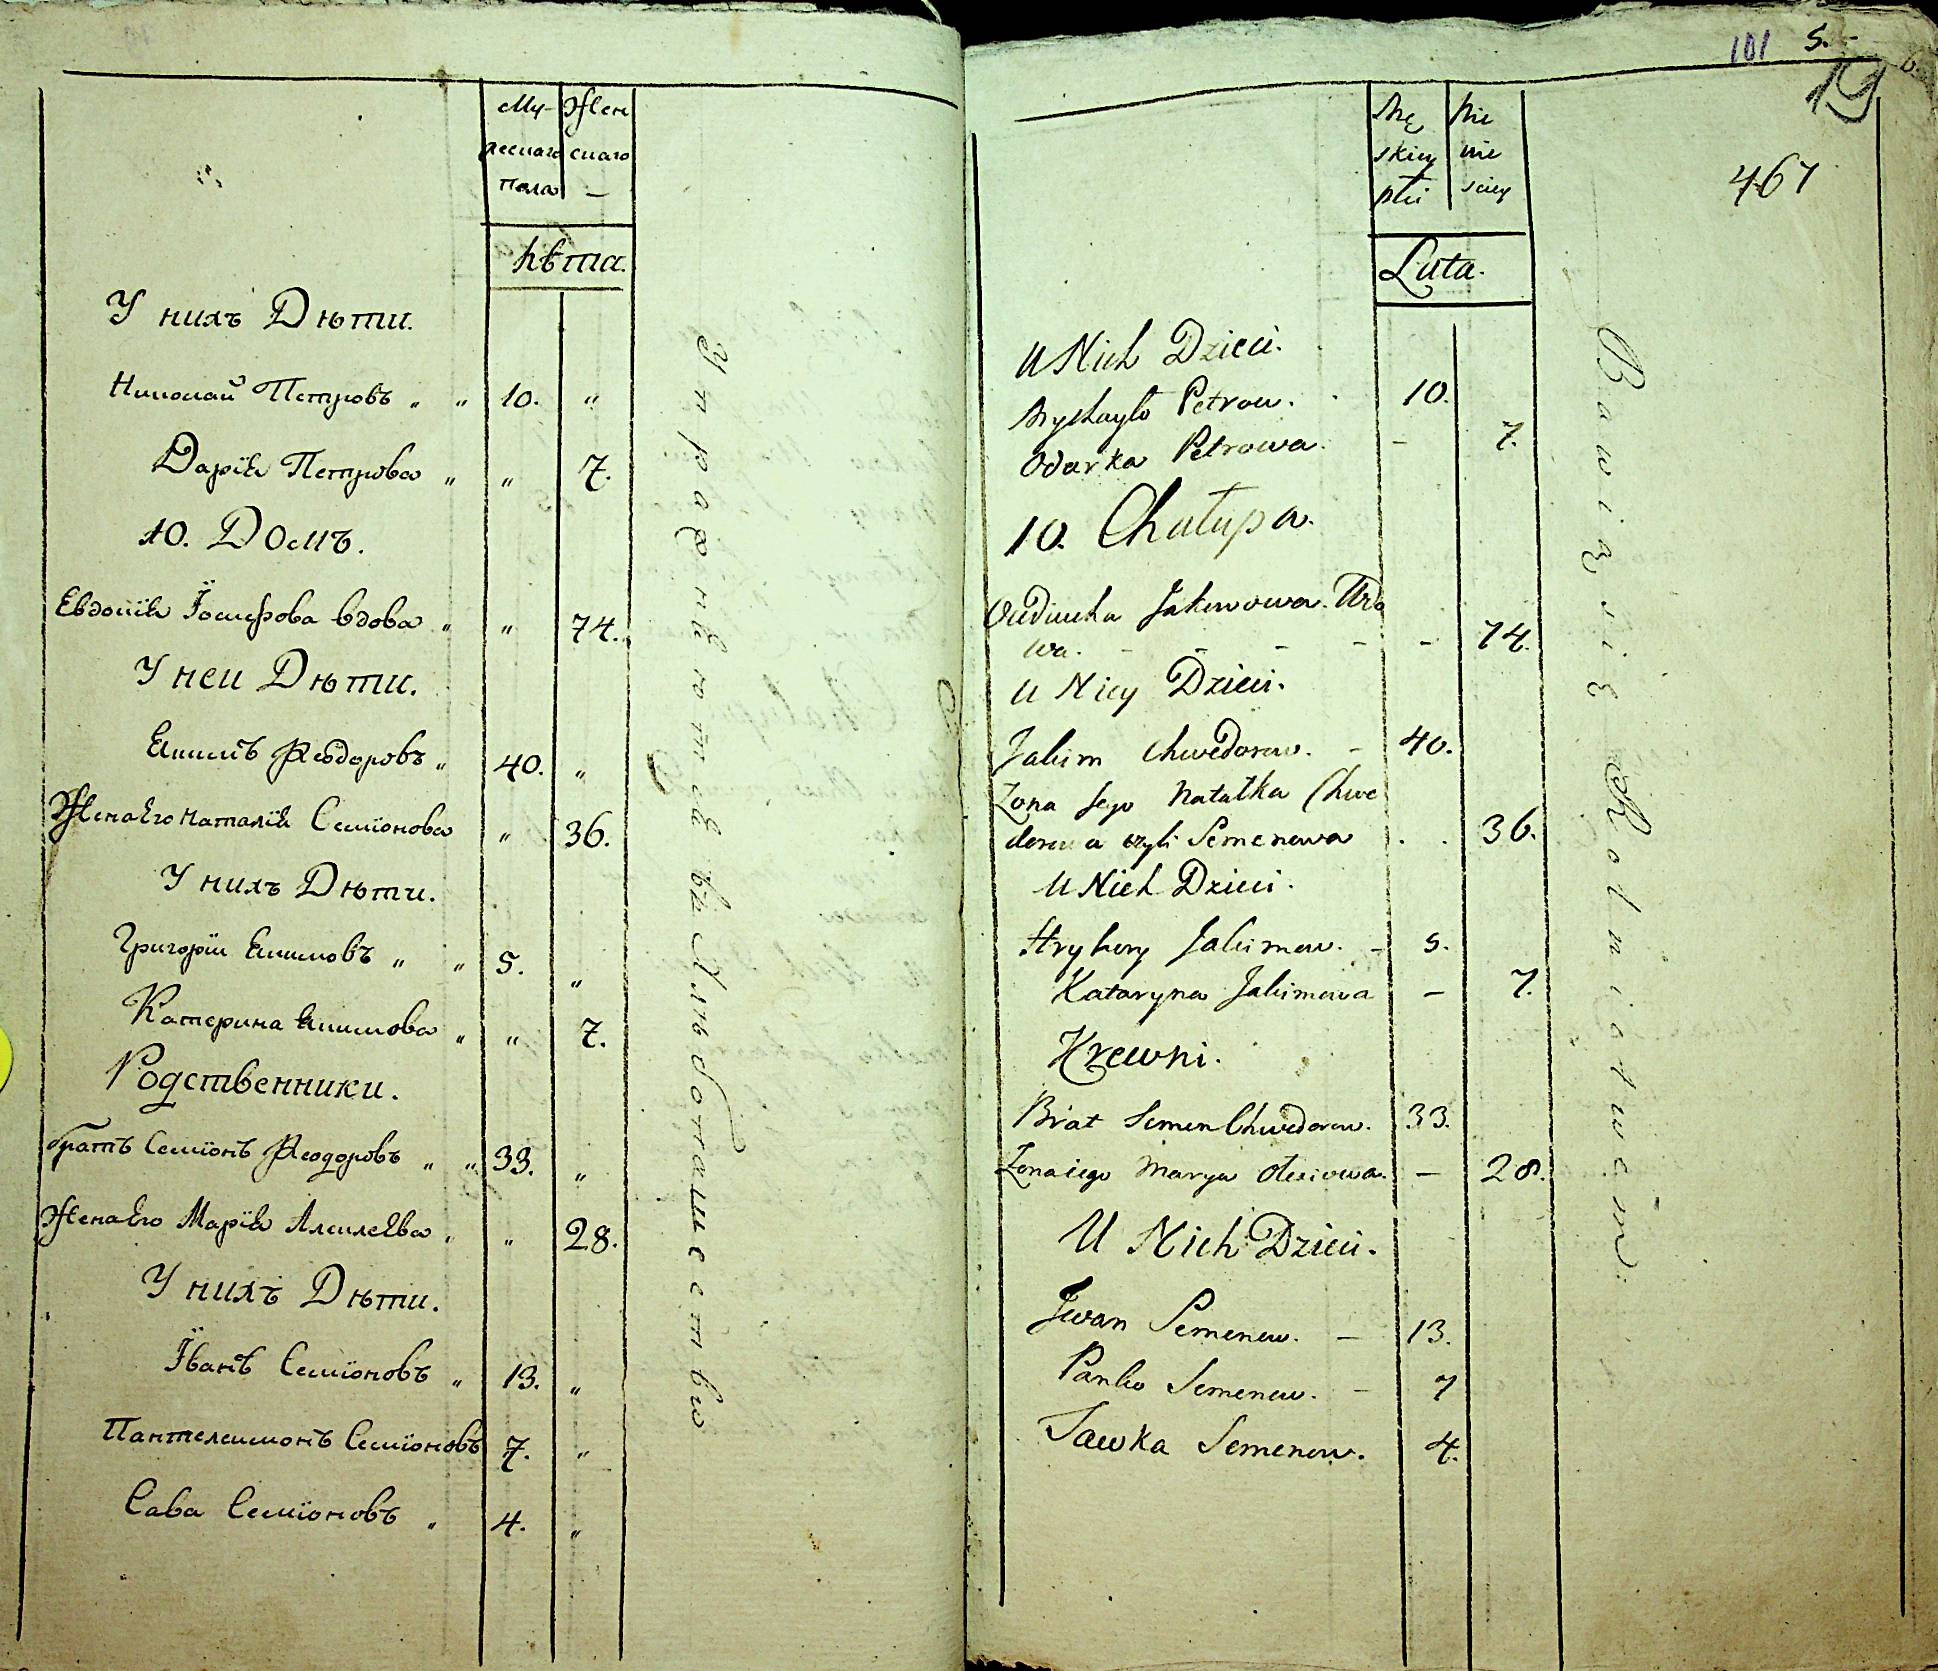 Му-
жескаго
пола
Жен
скаго
—
Лѣта.
У нихъ Дѣти.
Николай Петровъ „ „ 10. „
Дарія Петрова „ „ 7.
10. Домъ.
Евдокія Іосифова вдова „ „ 74.
У неи Дѣти.
Екимъ Феодоровъ „ 40. „
Жена Его Наталія Семіонова „ 36.
У нихъ Дѣти.
Григоріи Екимовъ „ „ 5. „
Катерина Екимова „ „ 7.
Родственники.
братъ Семіонъ Феодоровъ „ „ 33. „
Жена Его Марія Алексеѣва „ „ 28.
У нихъ Дѣти.
Іванъ Семіоновъ „ 13. „
Пантелеимонъ Семіоновъ 7. „
Сава Семіоновъ „ 4. „
Упражняются въ Хлѣбопашествѣ
101 5.-
19
467
Mę
skiey
płci
Nie
wie
sciey
Lata.
U Nich Dzieci.
Mychayło Petrow. 10.
Odarka Petrowa. - 7.
10. Chałupa.
Owdiucha Jakowowa. Wdo
wa. - - - - - 74.
U Niey Dzieci.
Jakim Chwedorow. - 40.
Zona Jego Natalka Chwe
dorowa czyli Semenowa . . 36.
U Nich Dzieci.
Hryhory Jakimow. - 5.
Kataryna Jakimowa - 7.
Krewni.
Brat Semen Chwedorow. 33.
Zona iego Marya Olexiowa. - 28.
U Nich Dzieci.
Jwan Semenow. - 13.
Panko Semenow. - 7
Sawka Semenow. 4.
Bawią się Rolnictwem